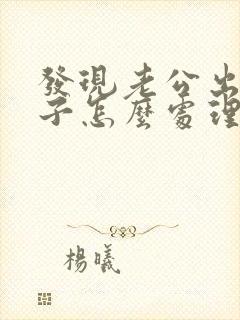 發現老公出
子怎麼處理
楊曦